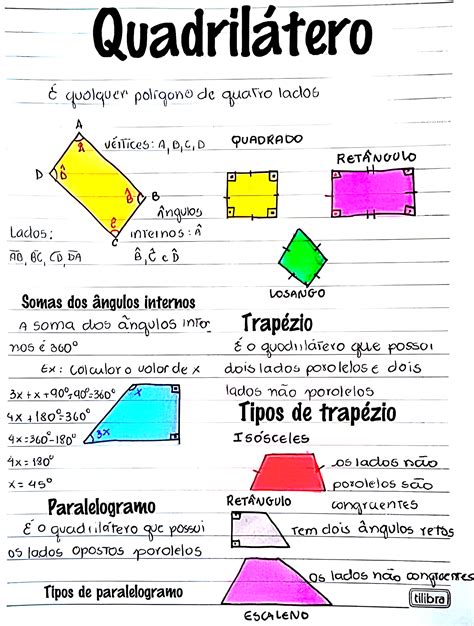 Quadrilátero
É qualquer polígono de quatro lados
A
Â
D
D̂
B
B̂
C
Ĉ
vértices: A, B, C, D
Lados:
AB, BC, CD, DA
ângulos
internos: Â
B̂, Ĉ e D̂
QUADRADO
RETÂNGULO
LOSANGO
Somas dos ângulos internos
A soma dos ângulos inter
nos é 360°
Ex: Calcular o valor de x
3x+x+90°+90°=360°
4x+180°=360°
4x=360°-180°
4x=180°
x=45°
x
3x
Paralelogramo
É o quadrilátero que possui
os lados opostos paralelos
Tipos de paralelogramo
Trapézio
É o quadrilátero que possui
dois lados paralelos e dois
lados não paralelos
Tipos de trapézio
ISÓSCELES
os lados não
paralelos são
congruentes
RETÂNGULO
Tem dois ângulos retos
os lados não congruentes
ESCALENO
tilibra